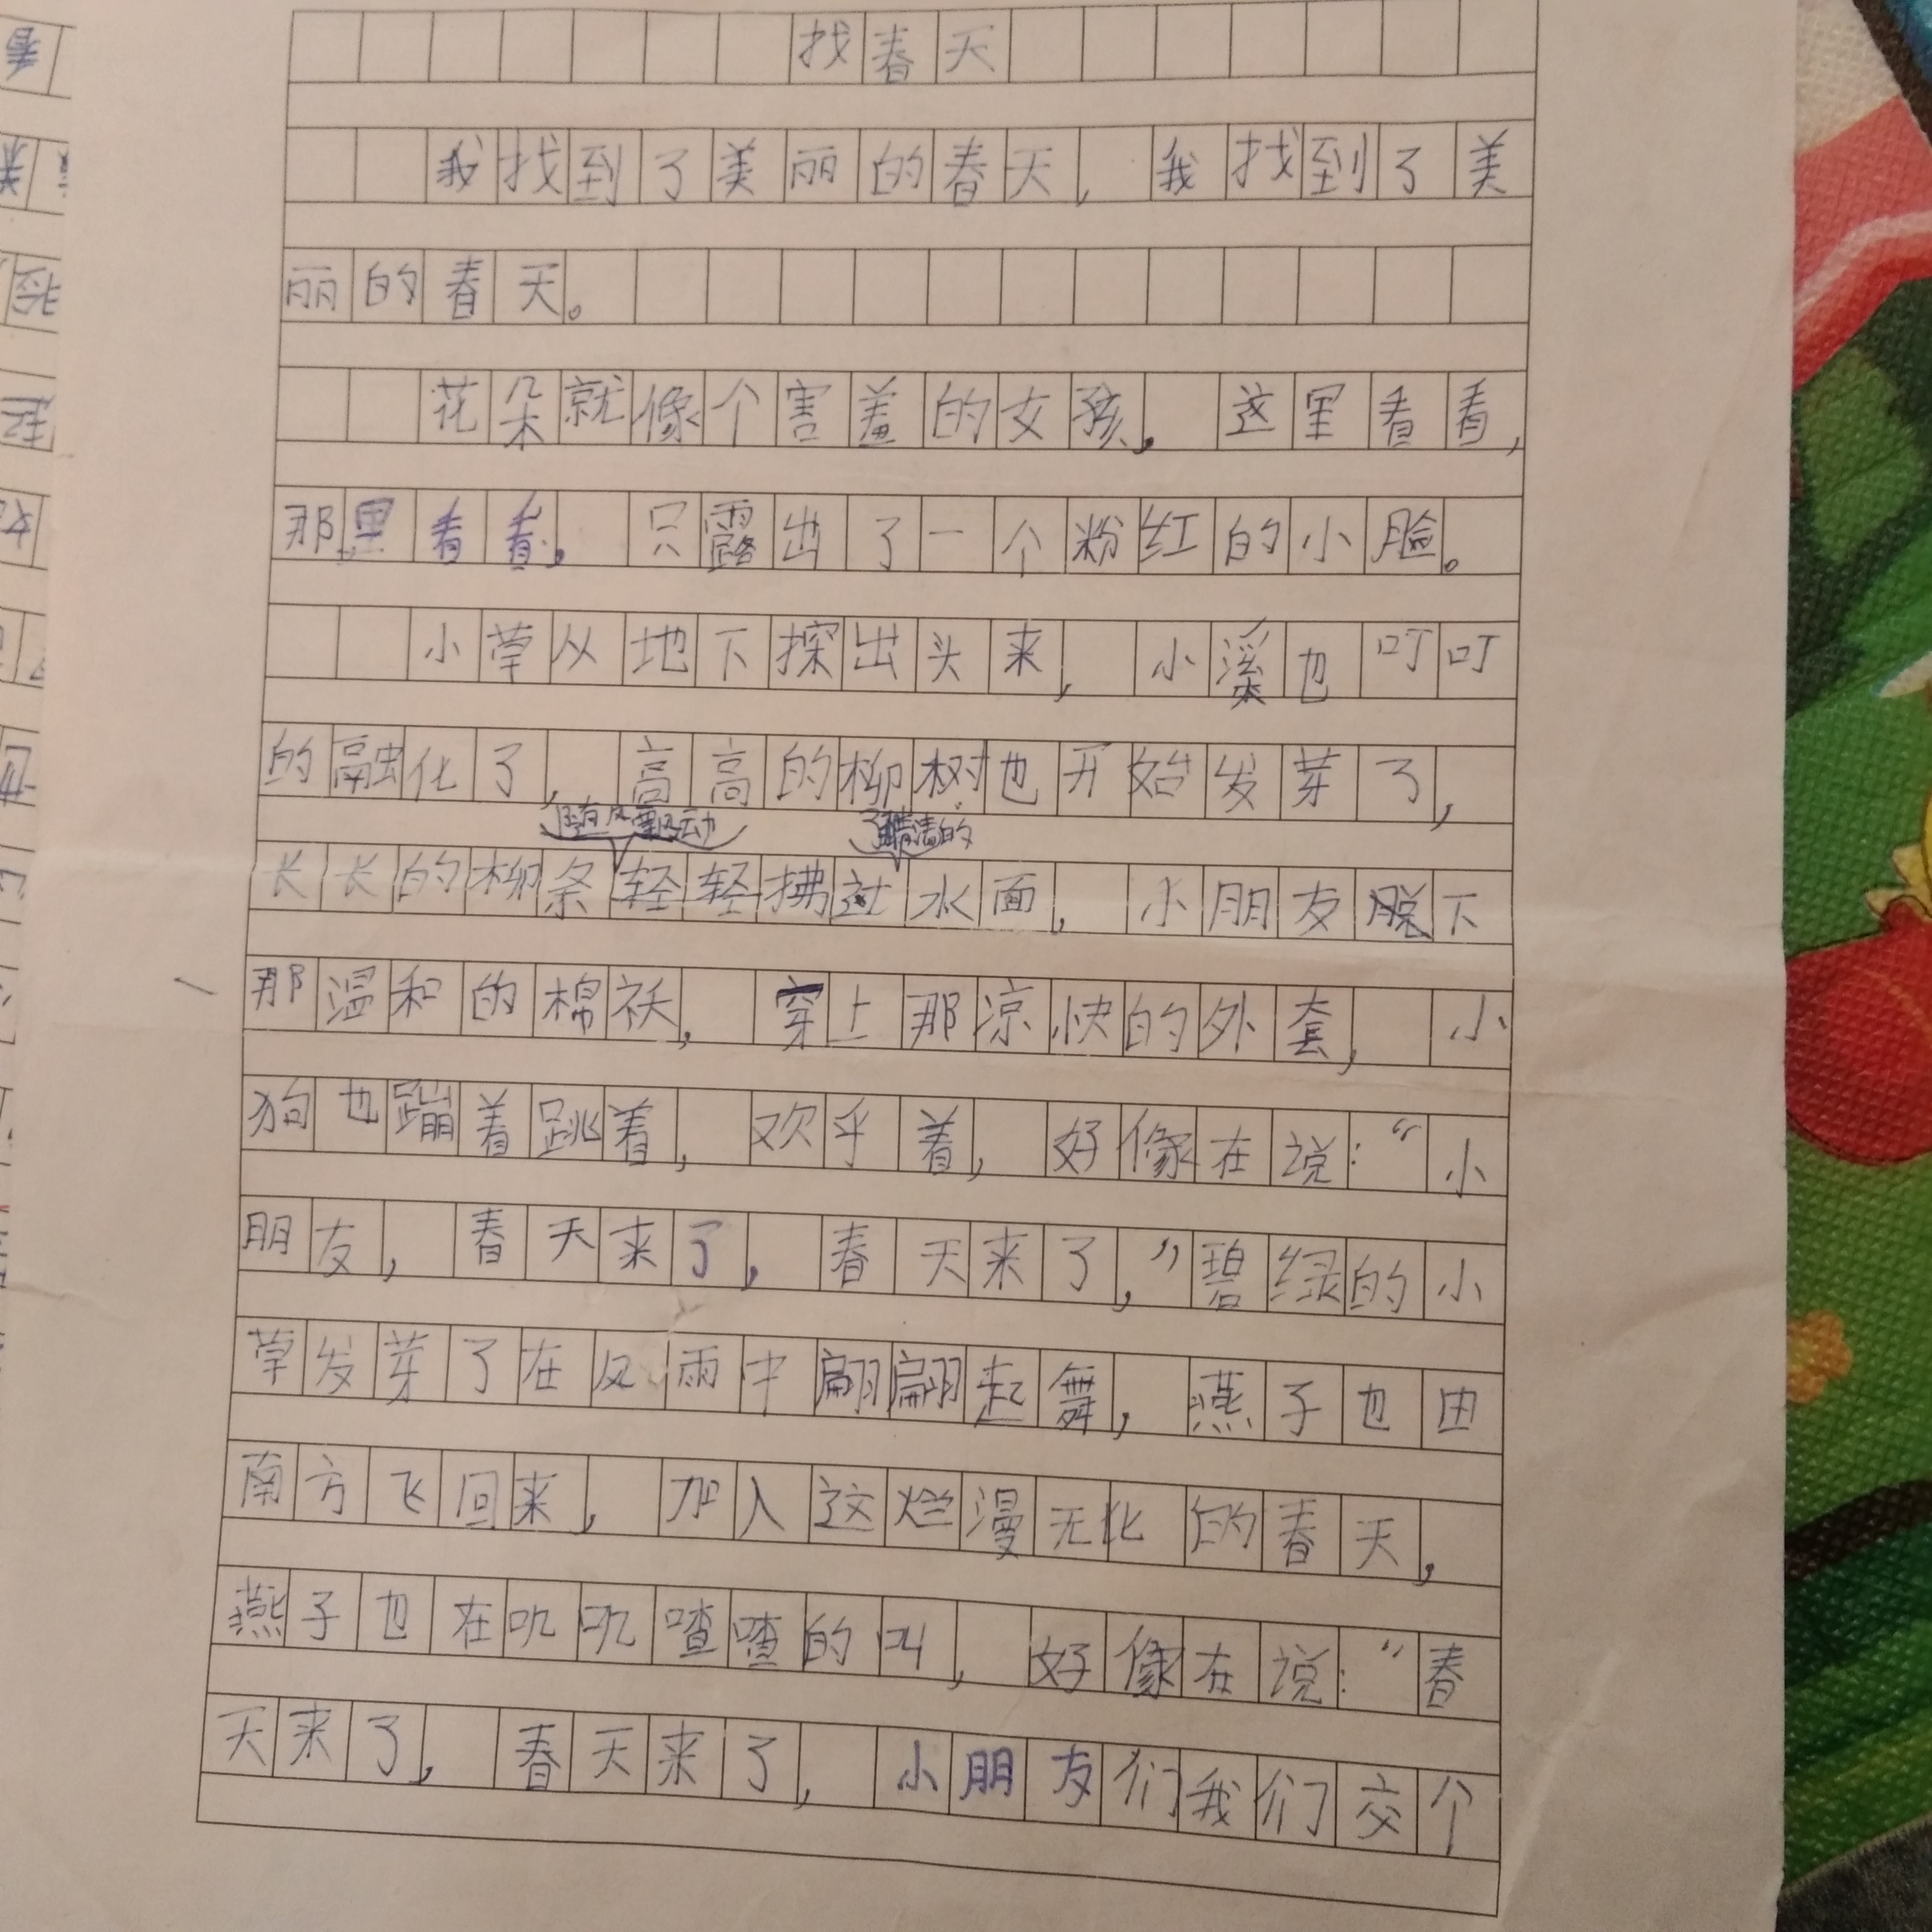 找春天
我找到了美丽的春天，我找到了美
丽的春天。
花朵就像个害羞的女孩，这里看看，
那里看看，只露出了一个粉红的小脸。
小草从地下探出头来，小溪也叮叮
的融化了，高高的柳树也开始发芽了，
随风飘动
了清清的
长长的柳条轻轻拂过水面，小朋友脱下
那温和的棉袄，穿上那凉快的外套，小
狗也蹦着跳着，欢乎着，好像在说：“小
朋友，春天来了，春天来了，”碧绿的小
草发芽了在风雨中翩翩起舞，燕子也由
南方飞回来，加入这烂漫无比的春天，
燕子也在叽叽喳喳的叫，好像在说：“春
天来了，春天来了，小朋友们我们交个